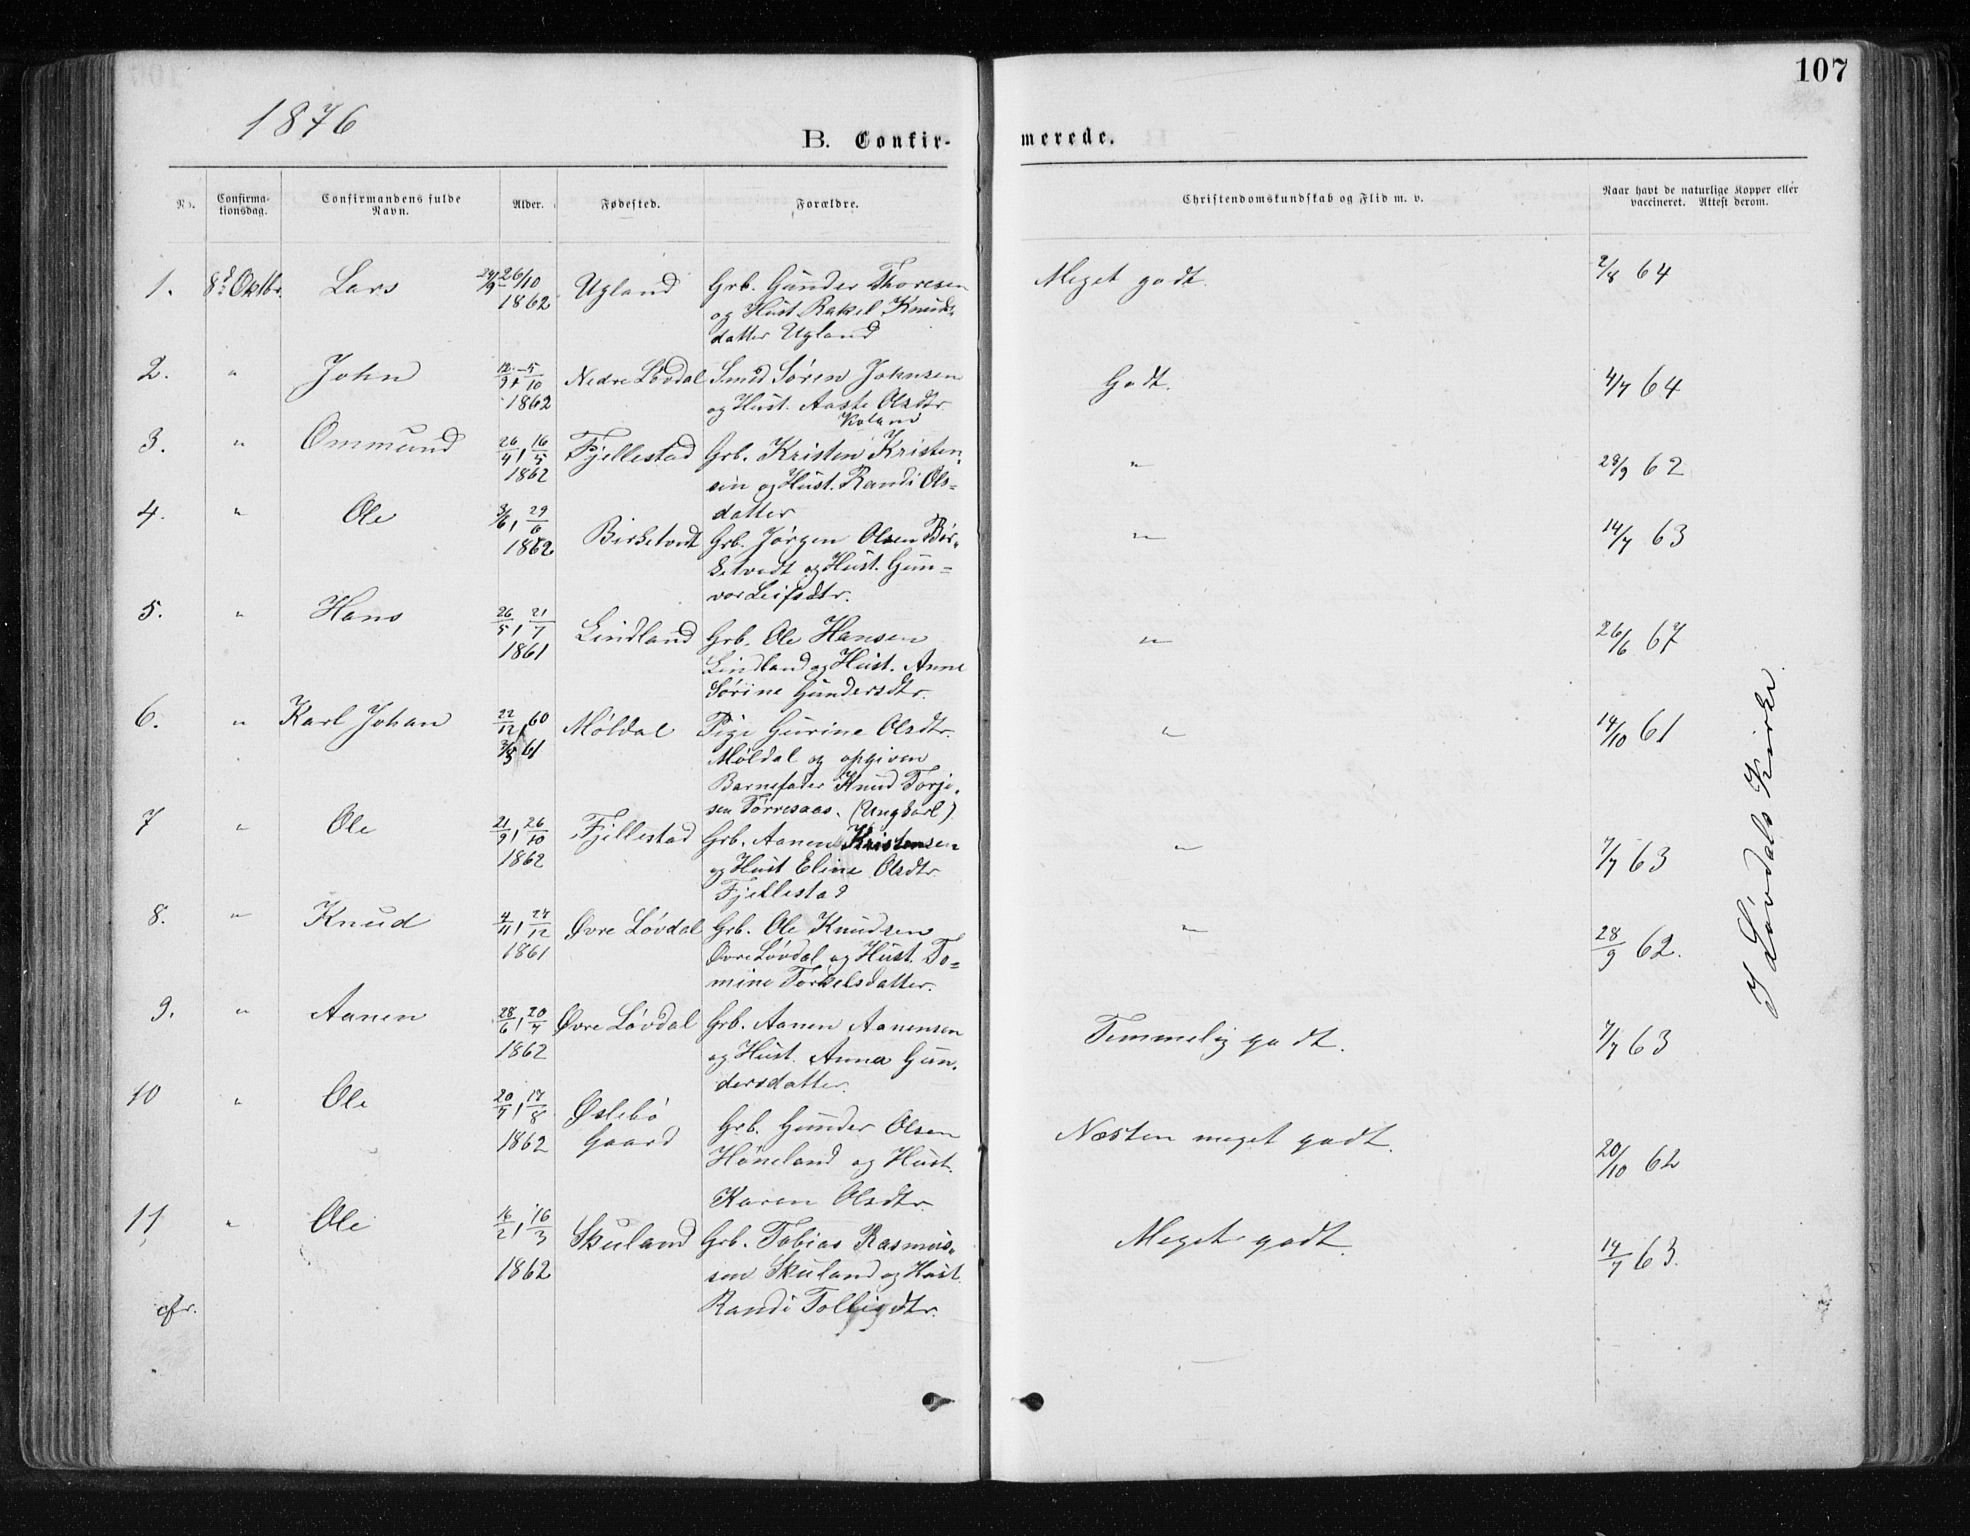 107
1876
B. Confir- merede.
No. Confirma-tionsdag. Confirmandens fulde Navn. Alder. Fødested. Forældre. Christendomskundskab og Flid m. v. Naar havt de naturlige Kopper eller vaccineret. Attest derom.
1. 8de Oktbr. Lars 26/10 Ugland Grb. Gunder Thoresen Meget godt. 2/8 64
1862 og Hust. Rakel Knuds-
datter Ugland
2. " John 12/9, 5/10 Nedre Løvdal Smed Søren Johnsen Godt. 4/7 64
1862 og Hust. Aaste Olsdtr.
3. " Ommund 26/4, 16/5 Fjellestad Grb. Kristen Kristen- " 28/9 62
1862 sen og Hust. Randi Ols-
datter
4. " Ole 3/6, 29/6 Birketvedt Grb. Jørgen Olsen Bir- " 14/7 63
1862 ketvedt og Hust. Gun-
vor Leifsdtr.
5. " Hans 26/5, 21/7 Lindland Grb. Ole Hansen " 26/6 67
1861 Lindland og Hust. Anne
Sørine Gundersdtr.
6. " Karl Johan 22/12 60 Møldal Pige Gurine Olsdtr. " 14/10 61
61 Møldal og opgiven
Barnefader Knud Torji-
sen Tørresaas. (Ungkarl)
7 " Ole 21/9, 26/10 Fjellestad Grb. Aanen Kristensen " 7/7 63
1862 og Hust Eline Olsdtr
Fjellestad
8. " Knud 4/11, 27/12 Øvre Løvdal Grb. Ole Knudsen " 28/9 62.
1861 Øvre Løvdal og Hust. To-
mine Torkelsdatter.
9. " Aanen 28/6, 20/7 Øvre Løvdal Grb. Aanen Aanensen Temmelig godt. 7/7 63
1862 og Hust. Anna Gun-
dersdatter.
10 " Ole 20/7, 17/8 Øslebø Gaard Grb. Gunder Olsen Næsten meget godt. 20/10 62
1862 Høneland og Hust.
Karen Olsdtr.
11 " Ole 16/2, 16/3 Skuland Grb. Tobias Rasmus- Meget godt. 14/7 63.
1862 sen Skuland og Hust.
cfr. Randi Tolligsdtr.
I Løvdals Kirke.